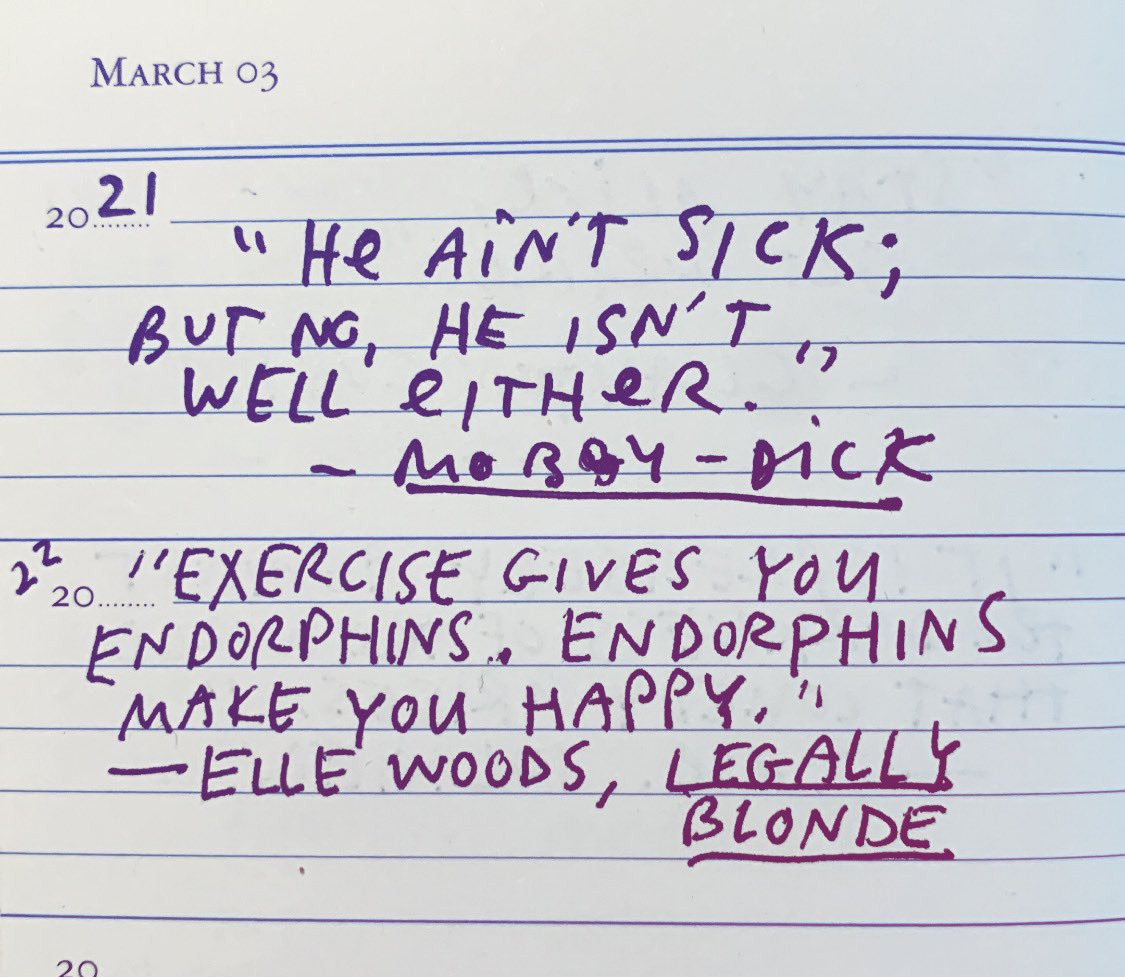 MARCH 03
20 21
"He AiN'T SICK;
BUT NO, HE ISN'T
WELL eITHeR."
- MOBY-DiCK
22
20........ "EXERCISE GIVES YOU
ENDORPHINS.. ENDORPHINS
MAKE YOU HAPPY."
—ELLE WOODS, LEGALLY
BLONDE
20